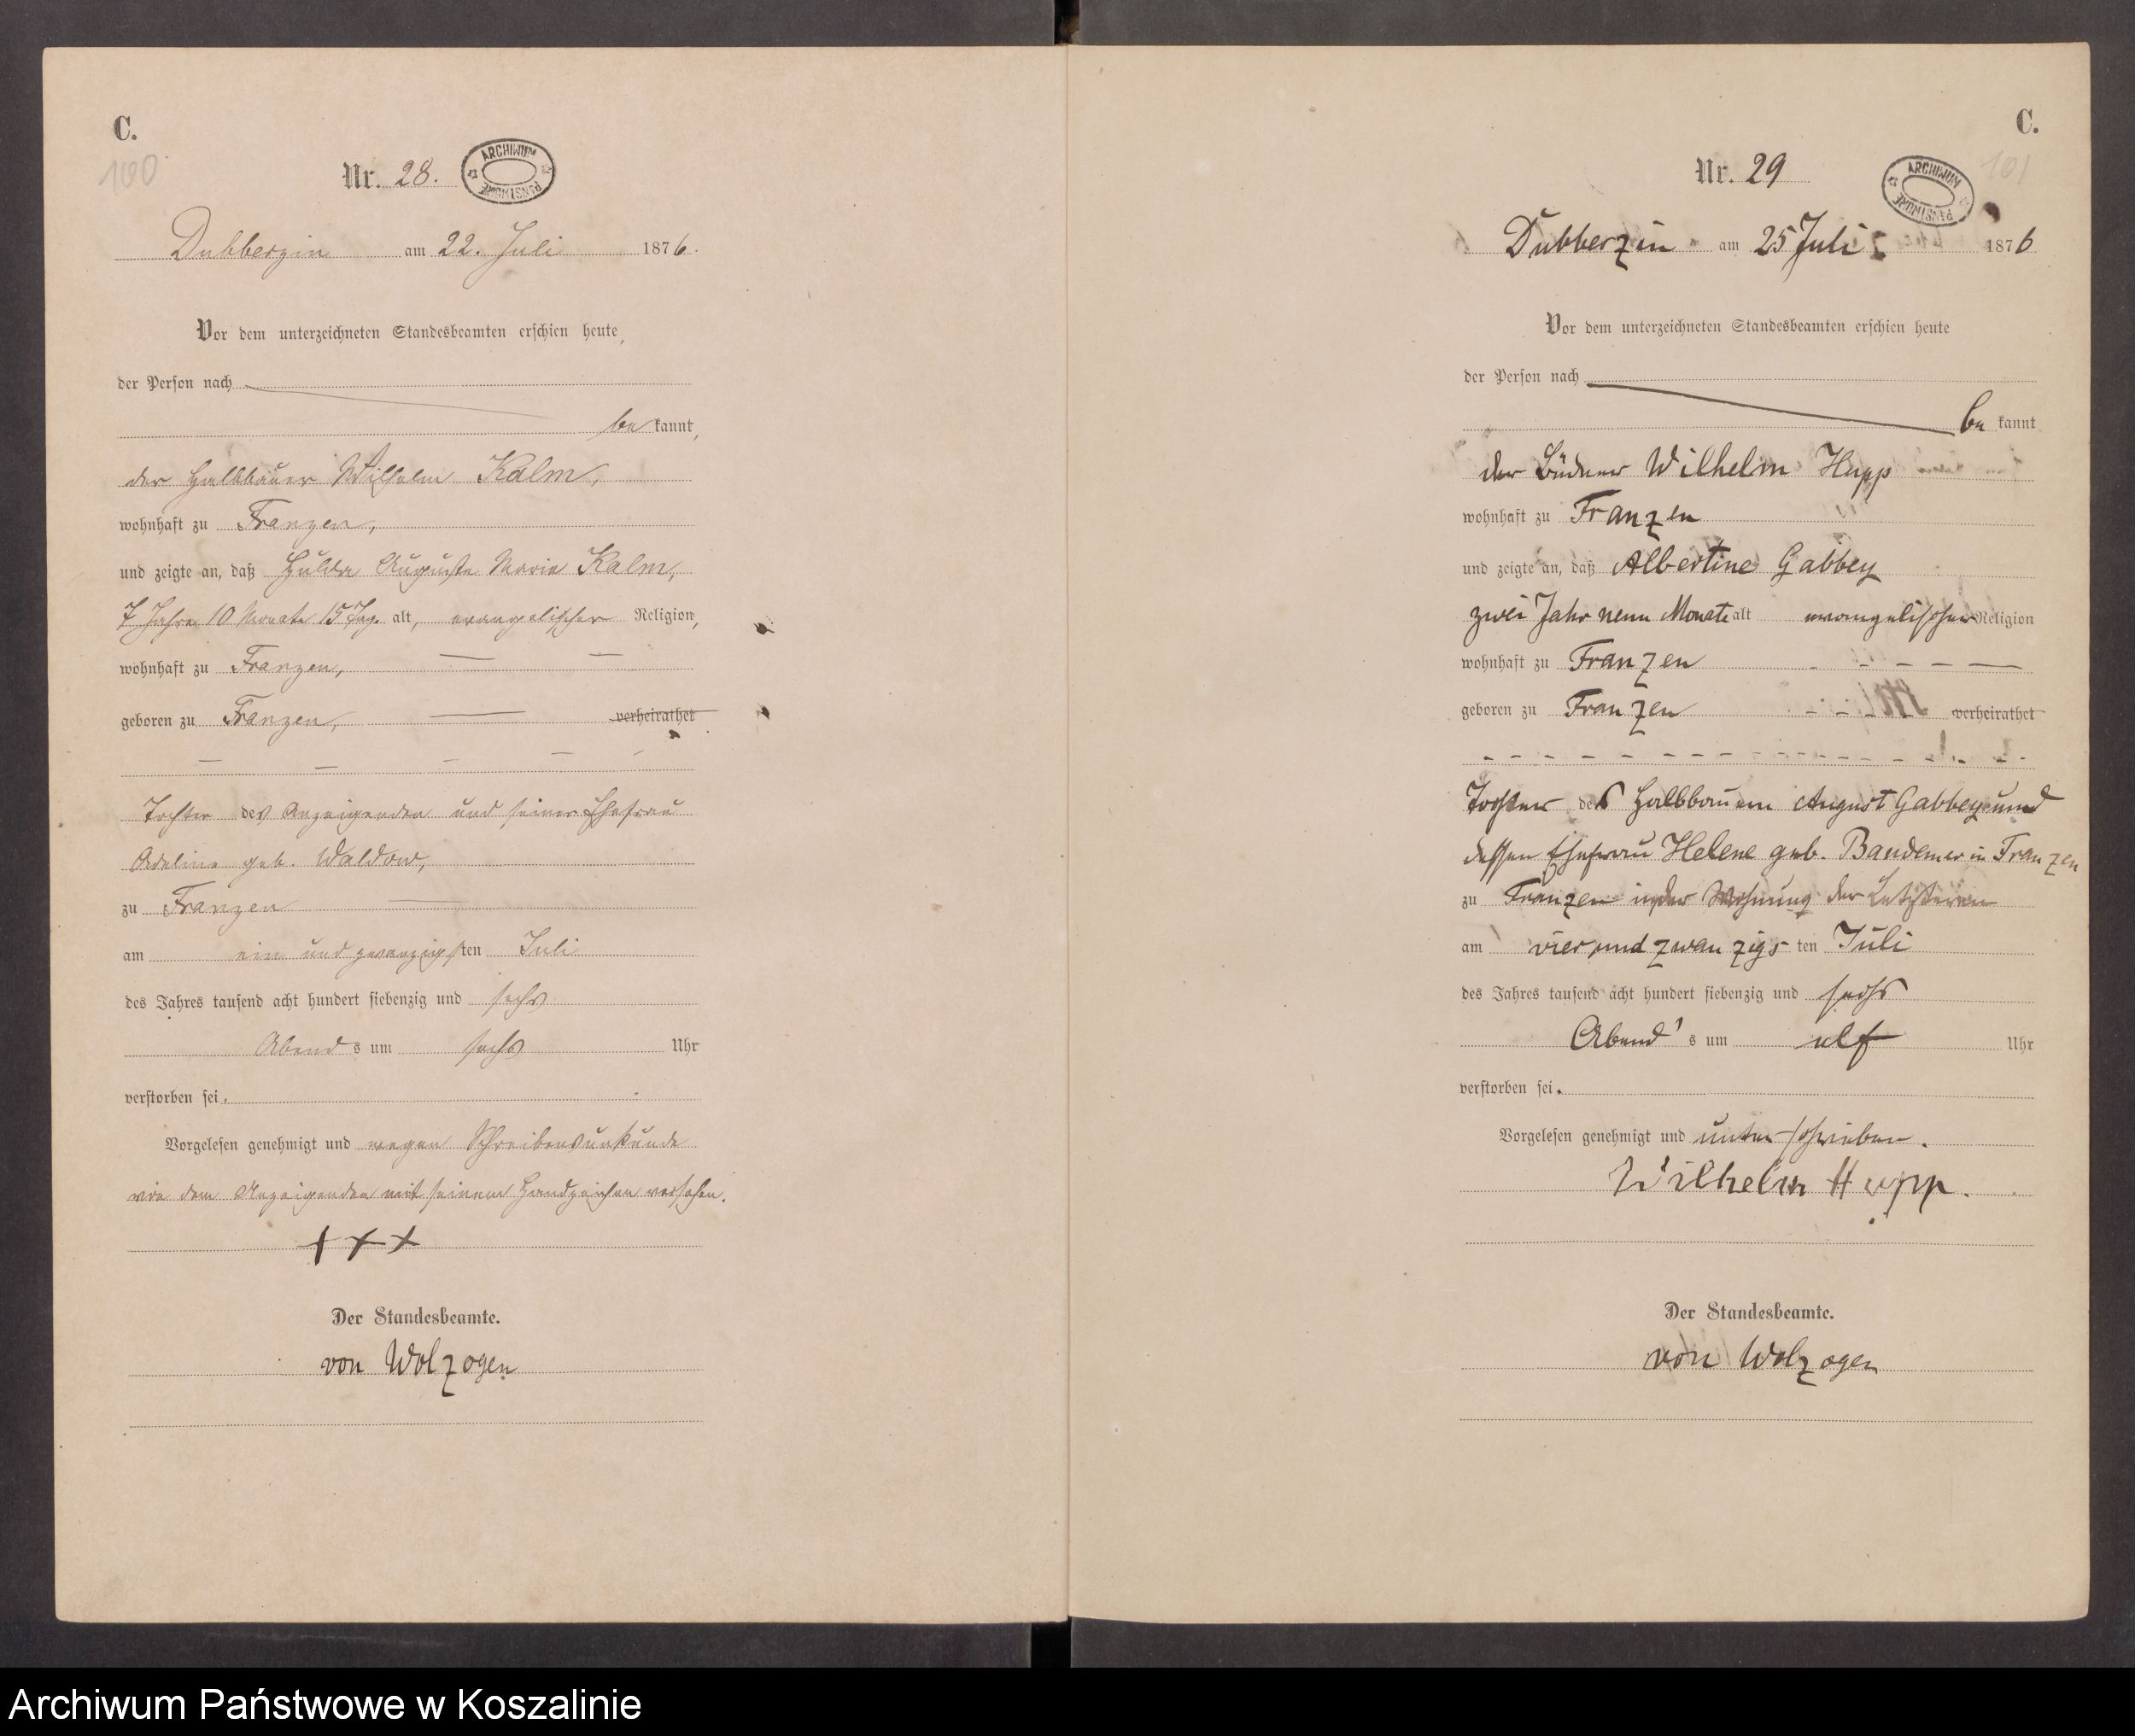 C.
100
Nr. 28.
ARCHIWUM PAŃSTWOWE
Dubberzin am 22. Juli 1876.
Vor dem unterzeichneten Standesbeamten erschien heute,
der Person nach
bekannt,
der Halbbauer Wilhelm Kalm,
wohnhaft zu Franzen,
und zeigte an, daß Hulda Auguste Marie Kalm,
7 Jahre 10 Monate 15 Tage alt, evangelischer Religion,
wohnhaft zu Franzen,
geboren zu Franzen, verheirathet
Tochter des Anzeigenden und seiner Ehefrau
Adeline geb. Waldow,
zu Franzen
am ein und zwanzigsten Juli
des Jahres tausend acht hundert siebenzig und sechs
Abends um sechs Uhr
verstorben sei.
Vorgelesen genehmigt und wegen Schreibensunkunde
von dem Anzeigenden mit seinem Handzeichen versehen.
+++
Der Standesbeamte.
von Wolzogen
C.
101
Nr. 29
ARCHIWUM PAŃSTWOWE
Dubberzin am 25 Juli 1876
Vor dem unterzeichneten Standesbeamten erschien heute
der Person nach
bekannt
der Büdner Wilhelm Hupp
wohnhaft zu Franzen
und zeigte an, daß Albertine Gabbey
zwei Jahr neun Monate alt evangelischer Religion
wohnhaft zu Franzen
geboren zu Franzen verheirathet
Tochter des Halbbauern August Gabbey und
dessen Ehefrau Helene geb. Bandemer in Franzen
zu Franzen in der Wohnung der Letzteren
am vier und zwanzigsten Juli
des Jahres tausend acht hundert siebenzig und sechs
Abend's um elf Uhr
verstorben sei.
Vorgelesen genehmigt und unterschrieben.
Wilhelm Hupp.
Der Standesbeamte.
von Wolzogen
Archiwum Państwowe w Koszalinie